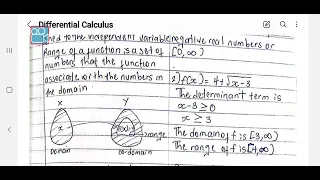 Differential Calculus
ned to the independent variable
Range of a function is a set of
numbers that the function
associate with the numbers in
the domain.
X
Y
x
f(x)
range
Domain
co-domain
negative real numbers or
[0,∞)
2) f(x) = 4+√x-3
The determinant term is
x-3 ≥ 0
x ≥ 3
The domain of f is [3,∞)
The range of f is [4,∞)